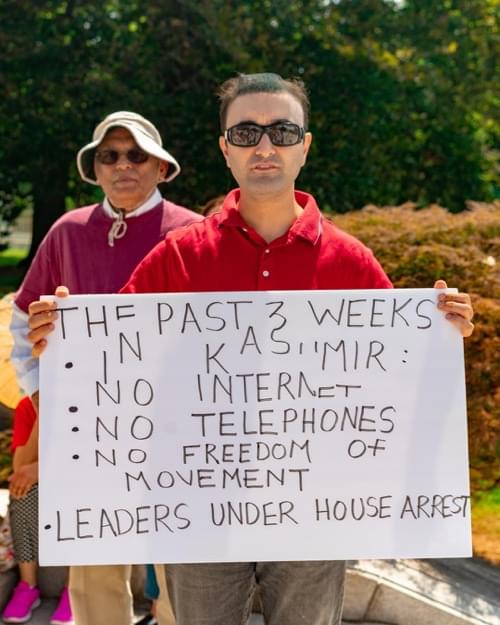 THE PAST 3 WEEKS
• IN KASHMIR:
• NO INTERNET
• NO TELEPHONES
• NO FREEDOM OF
MOVEMENT
• LEADERS UNDER HOUSE ARREST